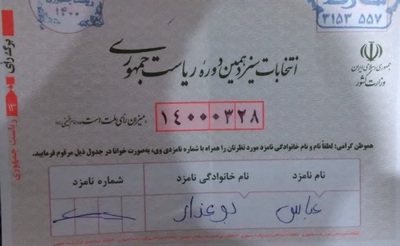 ۱۴۰۰
۳۱۵۳ ۵۵۷
برگ رأی
۱۳
ریاست جمهوری
انتخابات سیزدهمین دوره ریاست جمهوری
جمهوری اسلامی ایران
وزارت کشور
۱۴۰۰۰۳۲۸
میزان رأی ملت است
هموطن گرامی؛ لطفاً نام و نام خانوادگی نامزد مورد نظرتان را همراه با شماره نامزدی وی، به‌صورت خوانا در جدول ذیل مرقوم فرمایید.
نام نامزد نام خانوادگی نامزد شماره نامزد
عباس بوعذار